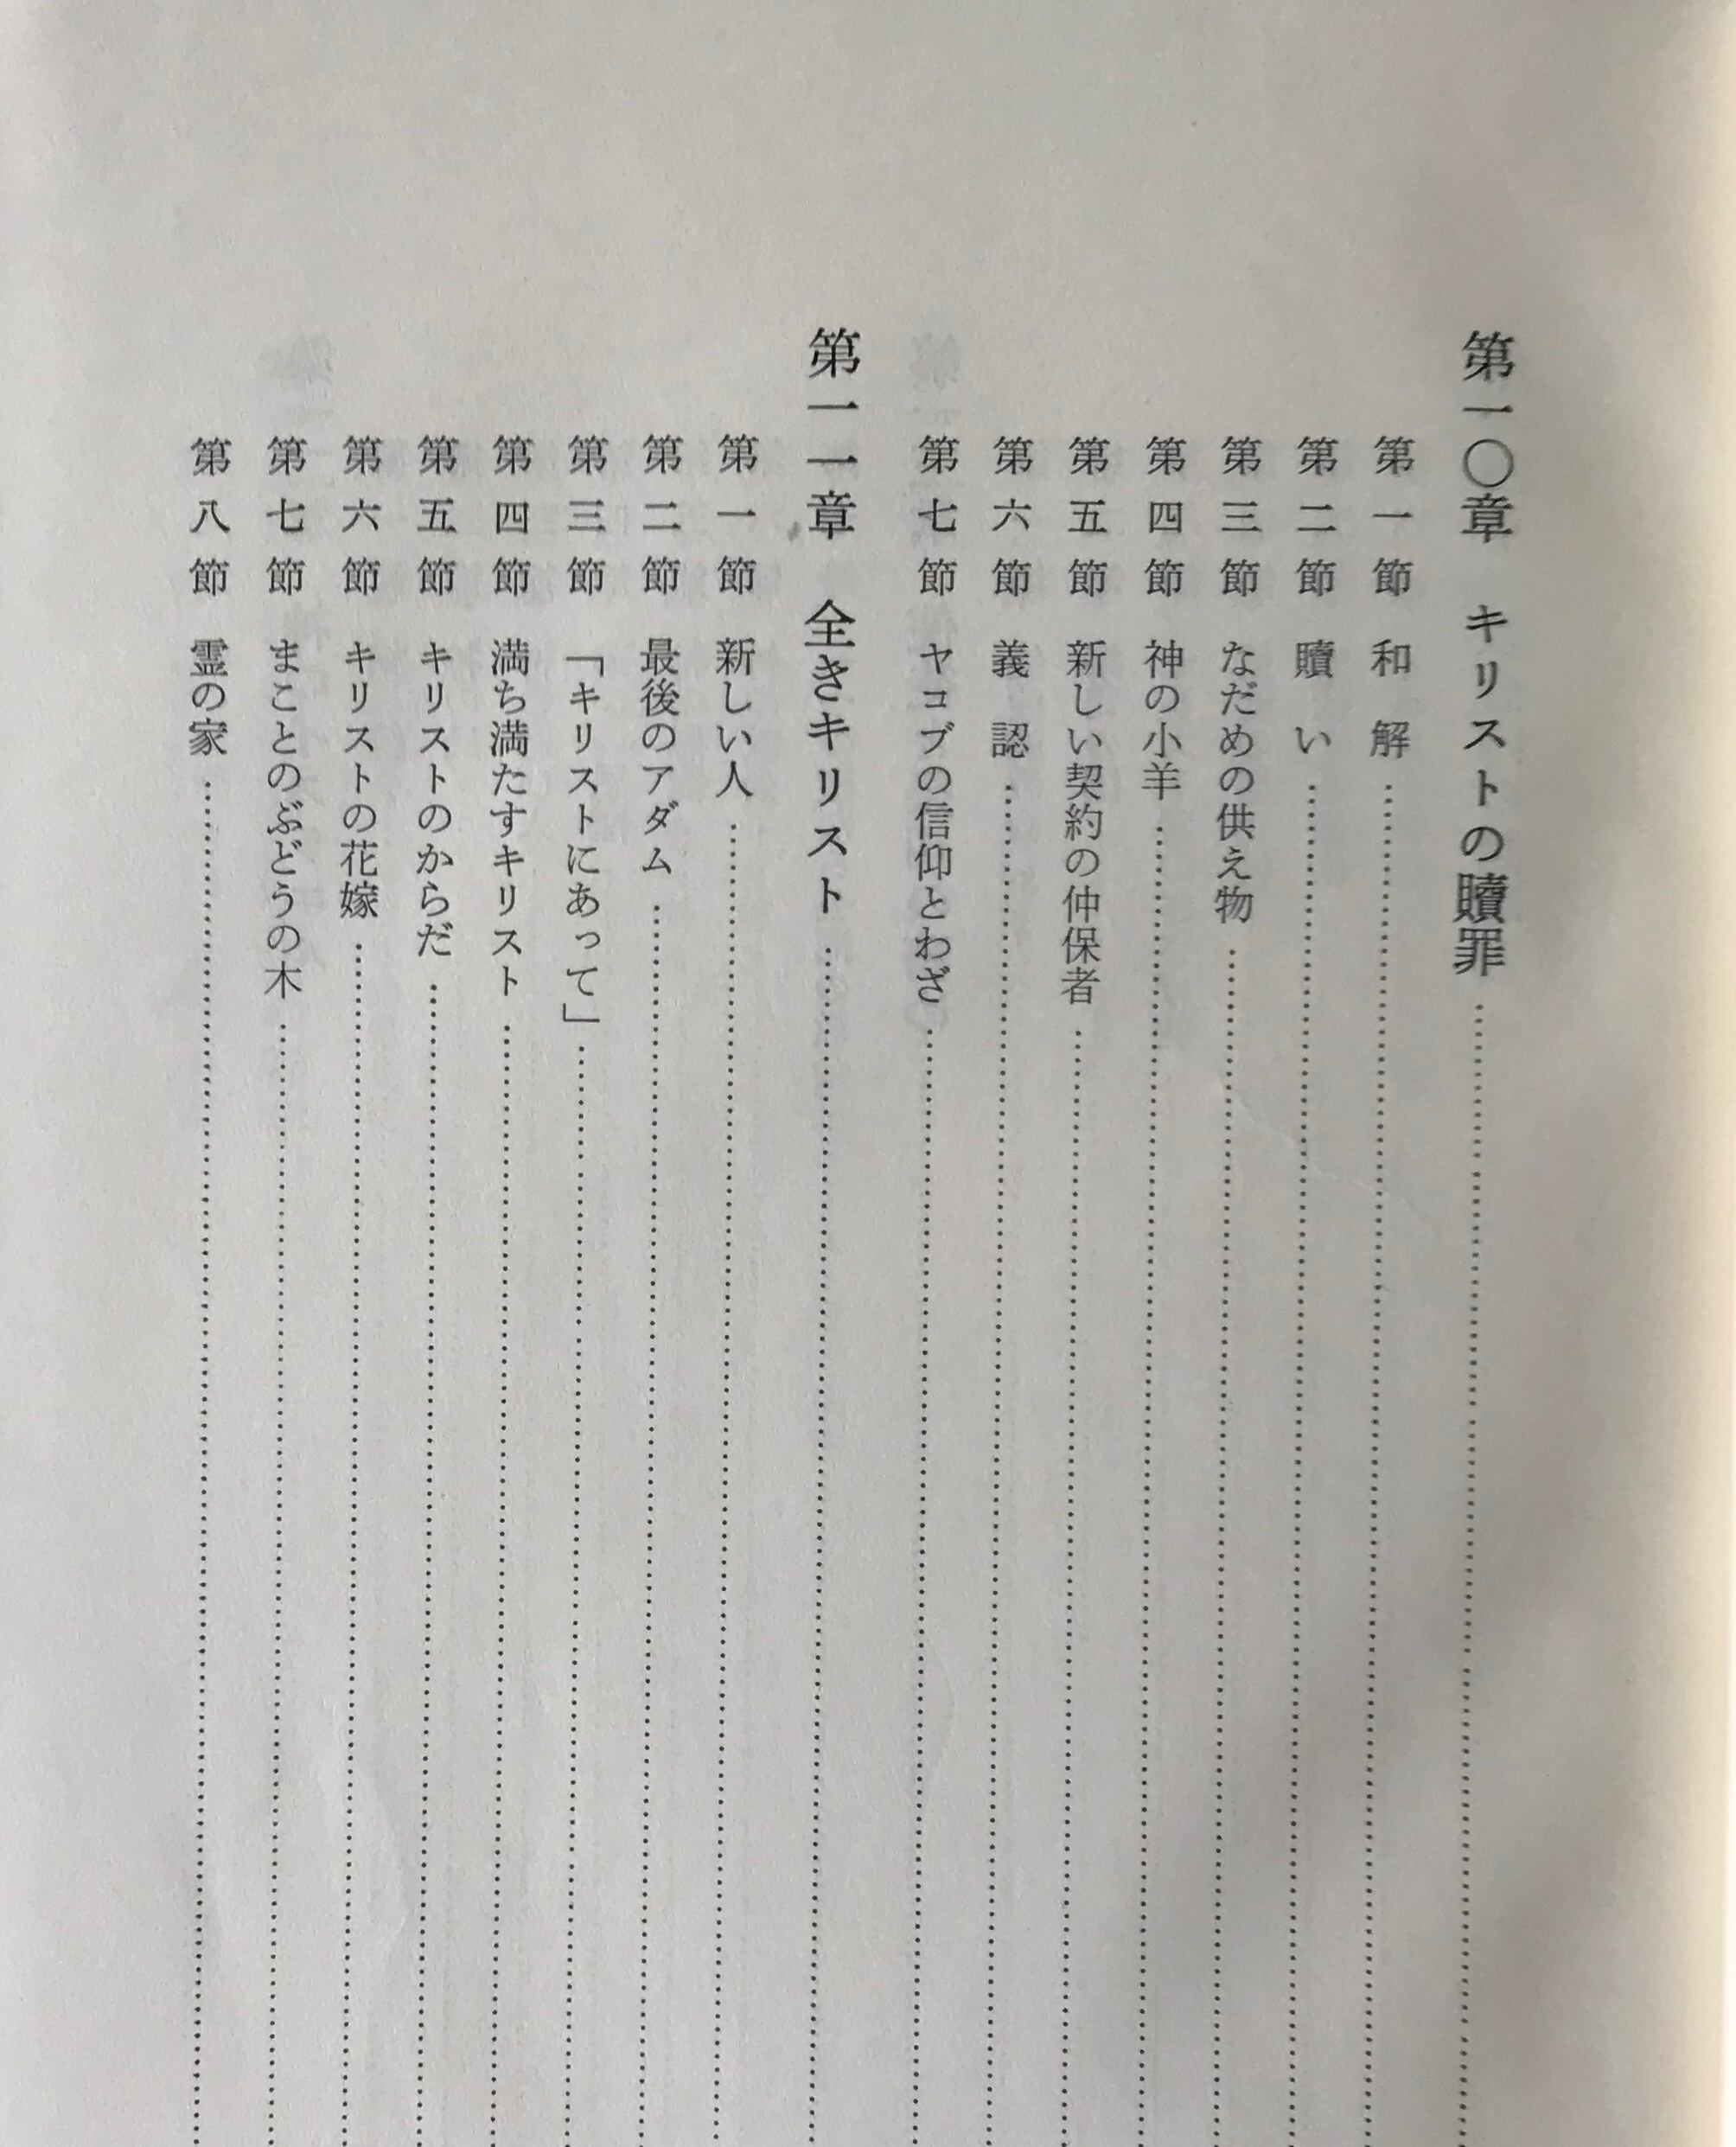 第一〇章　キリストの贖罪
第一節　和　解
第二節　贖　い
第三節　なだめの供え物
第四節　神の小羊
第五節　新しい契約の仲保者
第六節　義　認
第七節　ヤコブの信仰とわざ
第一一章　全きキリスト
第一節　新しい人
第二節　最後のアダム
第三節　「キリストにあって」
第四節　満ち満たすキリスト
第五節　キリストのからだ
第六節　キリストの花嫁
第七節　まことのぶどうの木
第八節　霊の家